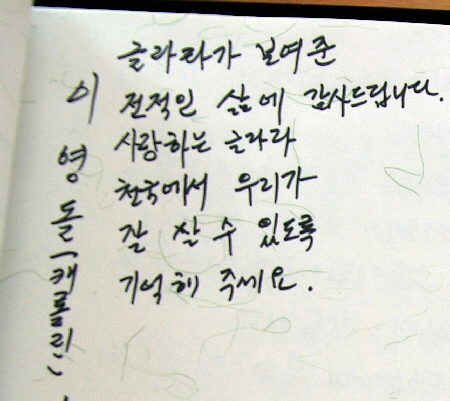 글라라가 보여준
전적인 삶에 감사드립니다.
사랑하는 글라라
천국에서 우리가
잘 살 수 있도록
기억해 주세요.
이영돌(캐롤린)